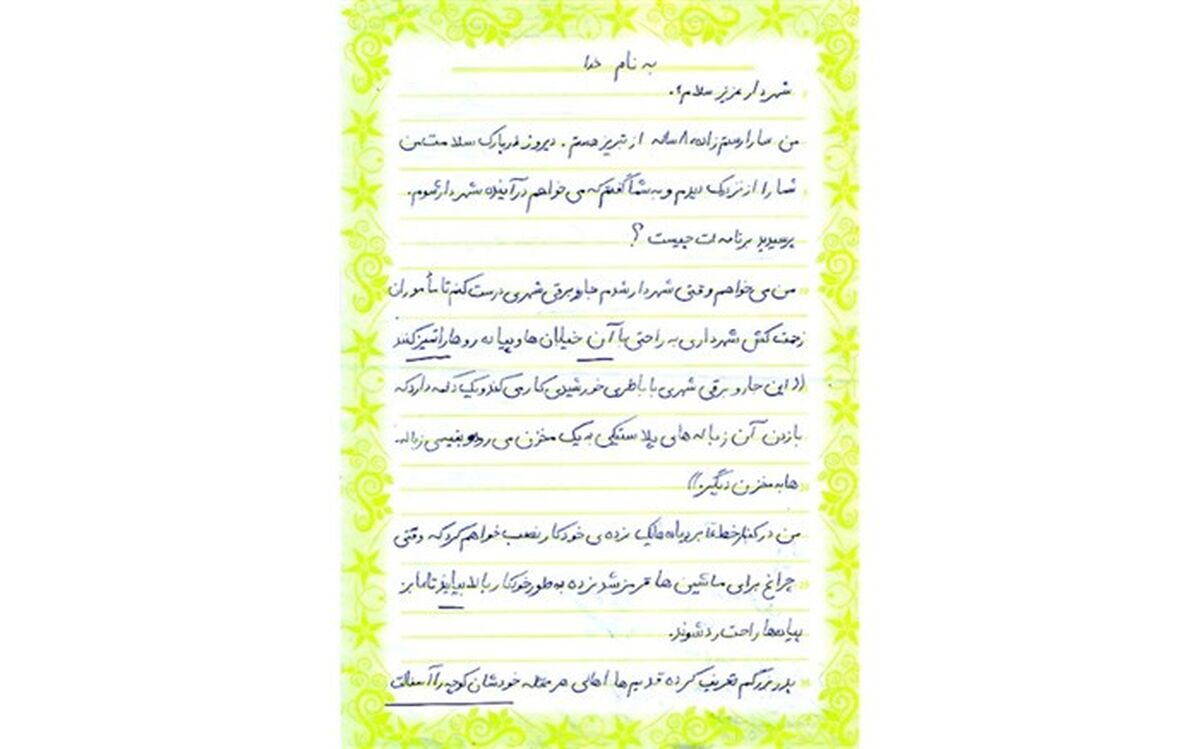 به نام خدا
شهردار عزیز سلام.
من سارا رستم زاده ۸ ساله از تبریز هستم. دیروز در پارک سلامت من
شما را از نزدیک دیدم و به شما گفتم که می خواهم در آینده شهردار شوم.
پرسیدید برنامه ات چیست؟
من می خواهم وقتی شهردار شدم جارو برقی شهری درست کنم تا مأموران
زحمت کش شهرداری به راحتی با آن خیابان ها و پیاده روها را تمیز کنند
((این جارو برقی شهری با باطری خورشیدی کار می کند و یک دکمه دارد که
با زدن آن زباله های پلاستیکی به یک مخزن می رود و بقیه ی زباله
ها به مخزن دیگر.))
من در کنار خط عابر پیاده یک نرده ی خودکار نصب خواهم کرد که وقتی
چراغ برای ماشین ها قرمز شد نرده به طور خودکار بالا بیاید تا عابر
پیاده ها راحت رد شوند.
پدربزرگم تعریف کرده قدیم ها اهالی هر محله خودشان کوچه را آسفالت